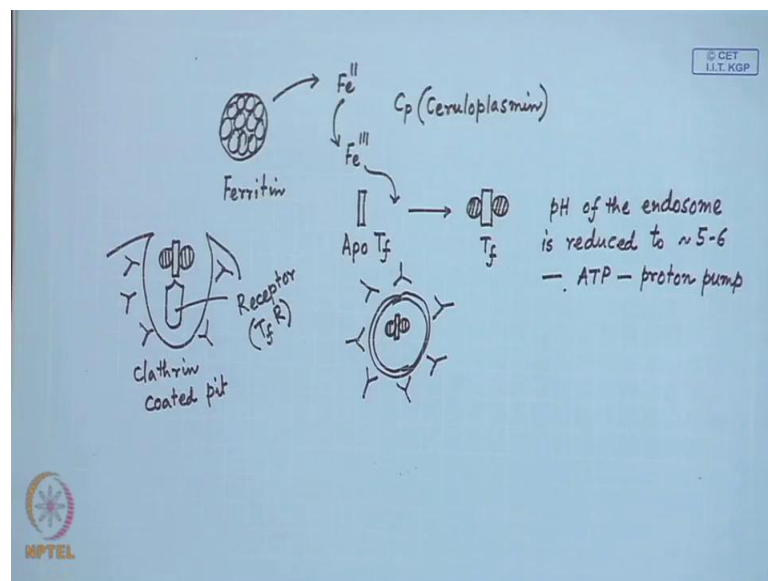 © CET
I.I.T. KGP
Fe II
Cp (Ceruloplasmin)
Fe III
Ferritin
Apo Tf
Tf
pH of the endosome
is reduced to ~ 5-6
— ATP — proton pump
Receptor
(TfR)
Clathrin
coated pit
NPTEL